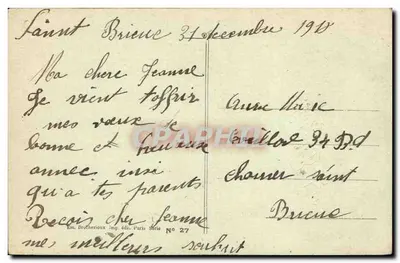 Sainnt Brieuc 31 decembre 191
Ma chere Jeanne
Je vient t'offrir
mes vœux de
bonne et heureuse
annee insi
qu'a tes parents
Recois cher Jeanne
mes meilleurs souhait
34 Bd
charner saint
Brieuc
Paris
No 27
CPAPHIL